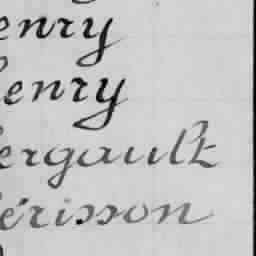 enry
enry
ergault
érisson